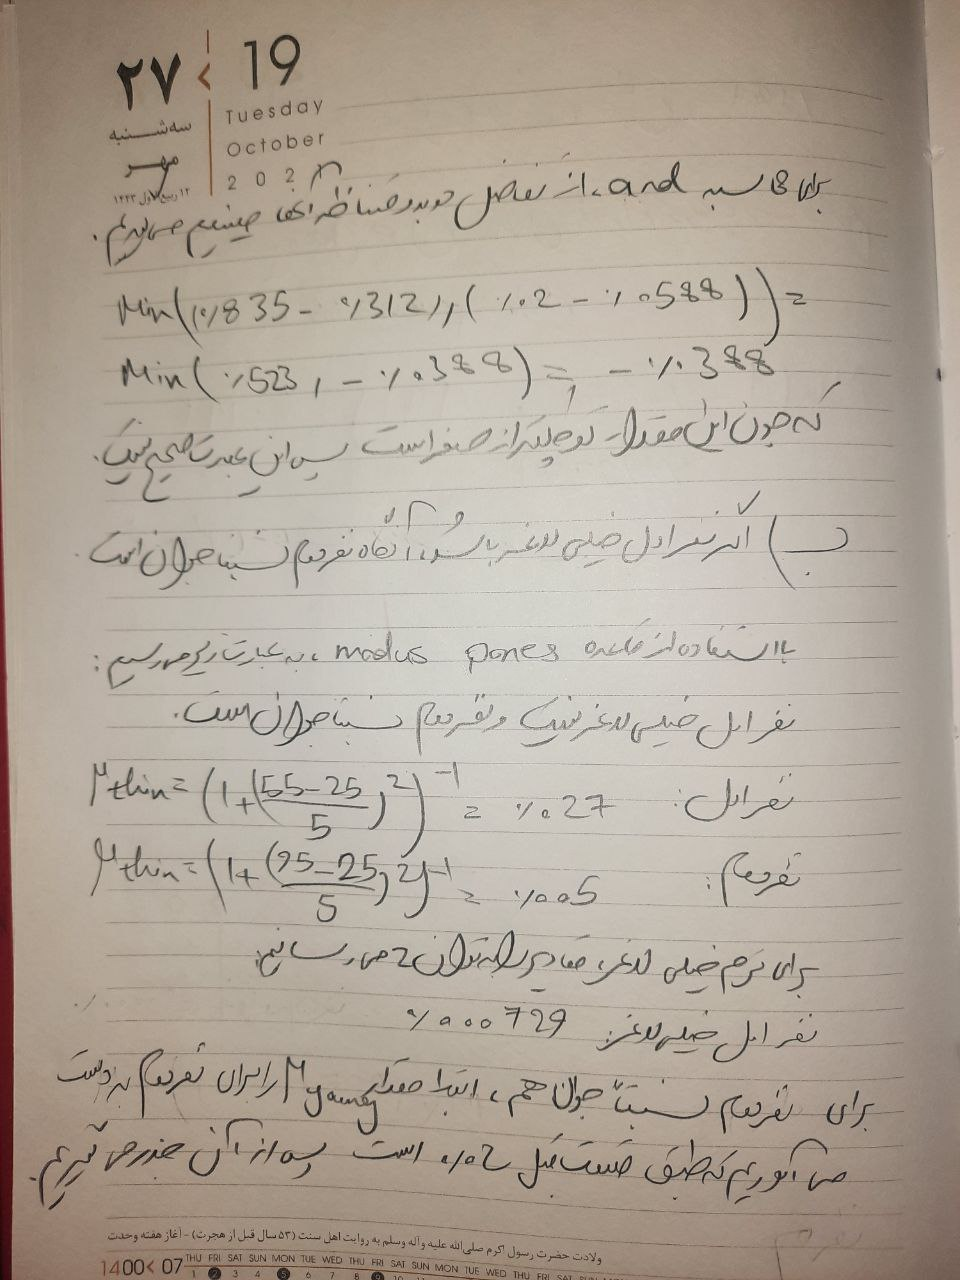 ۲۷ < 19
سه‌شنبه Tuesday
مهر October
۱۲ ربیع الاول ۱۴۴۳ 202
برای محاسبه and، از تفاضل دوبدو متناظر آنها مینیمم می‌گیریم.
Min((٪835 - ٪312), (٪02 - ٪0588)) =
Min(٪523, -٪0388) = -٪0388
که چون این مقدار کوچکتر از صفر است پس این عبارت صحیح نیست.
ب) اگر نفر اول خیلی لاغر باشد، آنگاه نفر دوم نسبتا جوان است.
با استفاده از قاعده modus pones، به عبارت زیر می‌رسیم:
نفر اول خیلی لاغر نیست و نفر دوم نسبتا جوان است.
نفر اول: μthin = (1+(55-25/5)^2)^-1 = ٪027
نفر دوم: μthin = (1+(95-25/5)^2)^-1 = ٪005
برای ترم خیلی لاغر، مقادیر را به توان 2 می‌رسانیم:
نفر اول خیلی لاغر: ٪000729
برای نفر دوم نسبتاً جوان هم، ابتدا مقدار μyoung را برای نفر دوم به دست
می‌آوریم که طبق قسمت قبل ٪02 است پس از آن جذر می‌گیریم.
ولادت حضرت رسول اکرم صلی‌الله علیه و آله وسلم به روایت اهل سنت (۵۳ سال قبل از هجرت) - آغاز هفته وحدت
1400< 07 THU FRI SAT SUN MON TUE WED THU FRI SAT SUN MON TUE WED THU FRI SAT SUN MON TUE
1 2 3 4 5 6 7 8 9 10